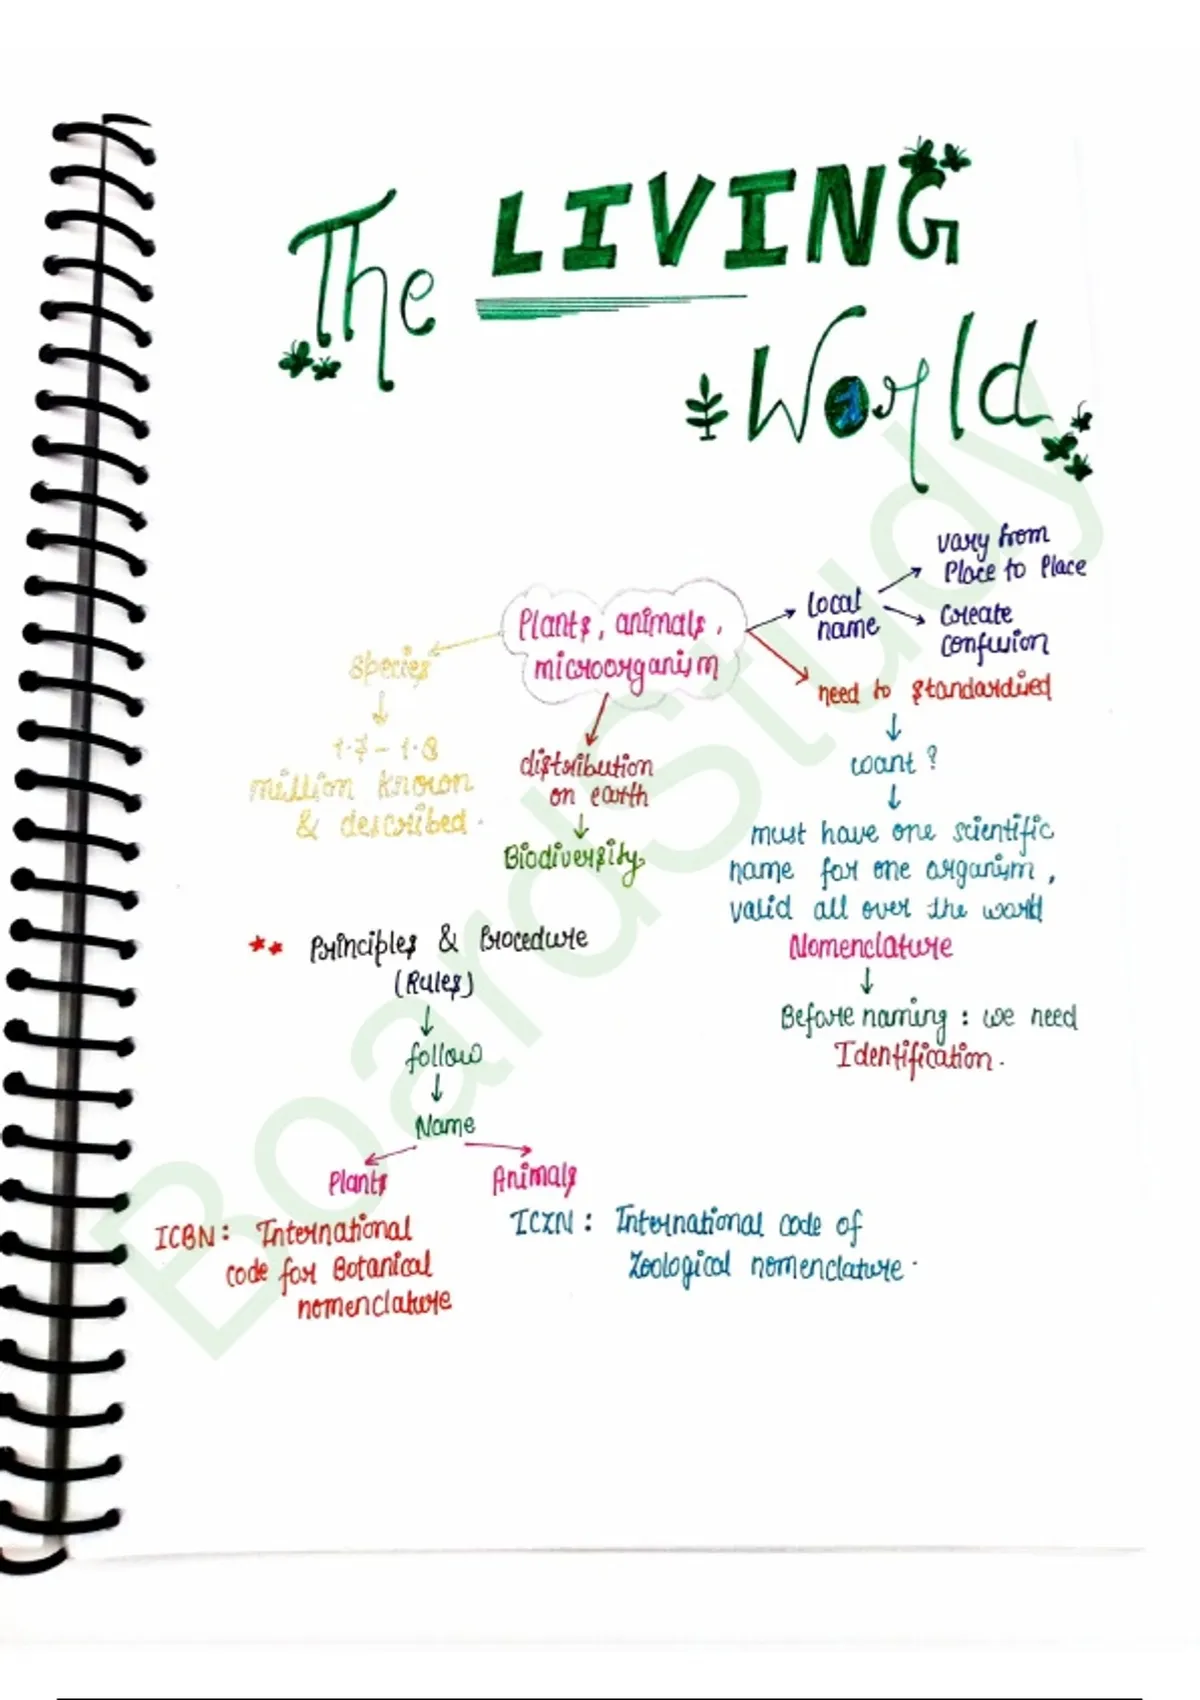 The LIVING
World
Plants, animals,
microorganism
Local
name
vary from
Place to Place
Create
confusion
need to standardized
want?
must have one scientific
name for one organism,
valid all over the world
Nomenclature
Before naming : we need
Identification.
species
1.7 - 1.8
million known
& described.
distribution
on earth
Biodiversity
** Principles & Procedure
(Rules)
follow
Name
Plants
Animals
ICBN: International
code for Botanical
nomenclature
ICZN: International code of
Zoological nomenclature.
BoardStudy